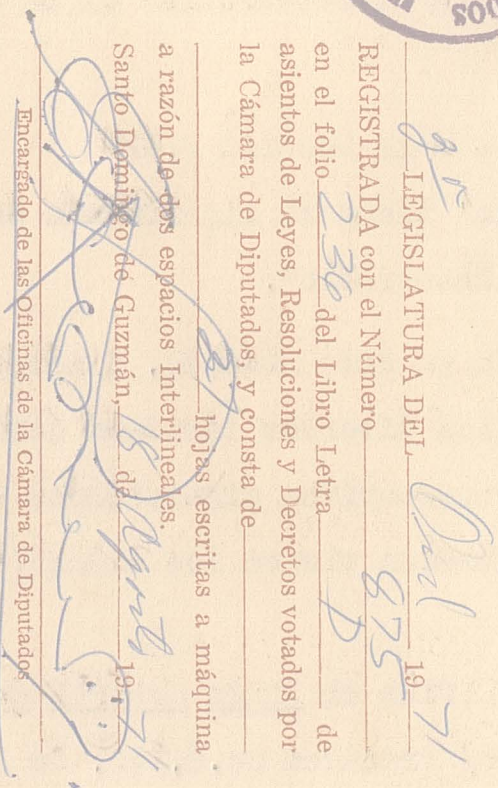 DOS
2ª LEGISLATURA DEL Ord 1971
REGISTRADA con el Número 875
en el folio 236 del Libro Letra D de
asientos de Leyes, Resoluciones y Decretos votados por
la Cámara de Diputados, y consta de
hojas escritas a máquina
a razón de dos espacios Interlineales.
Santo Domingo de Guzmán, 18 de Agosto 1971
Encargado de las Oficinas de la Cámara de Diputados